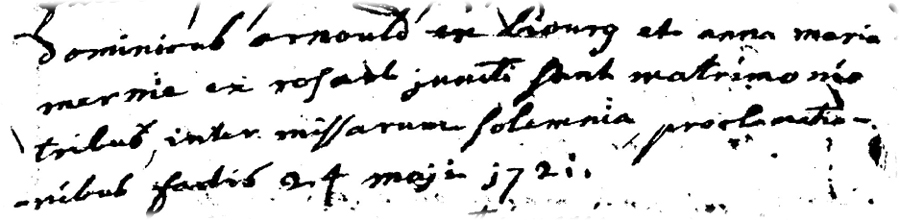 Dominicus arnould ex Liourg et anna maria
mernie ex rosael juncti sunt matrimonio
tribus, inter missarum solemnia proclamatio-
-nibus factis 24 maji 1721.